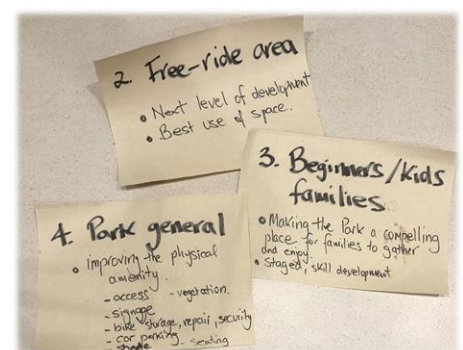 2. Free-ride area
• Next level of development
• Best use of space.
3. Beginners/Kids
families
• Making the Park a compelling
place for families to gather
and enjoy.
• Staged, skill development
4. Park general
• Improving the physical
amenity.
- access - vegetation.
- signage
- bike storage, repair, security
- car parking
- shade - seating